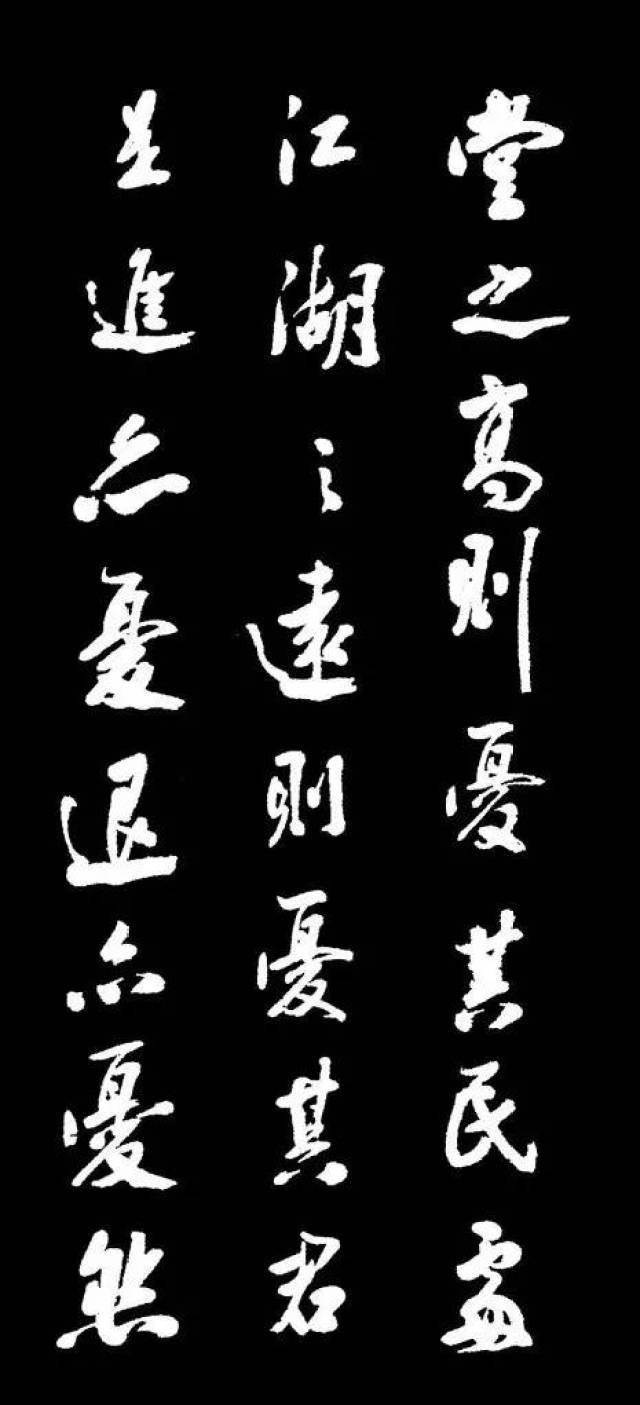 堂之高則憂其民處
江湖之遠則憂其君
是進亦憂退亦憂然